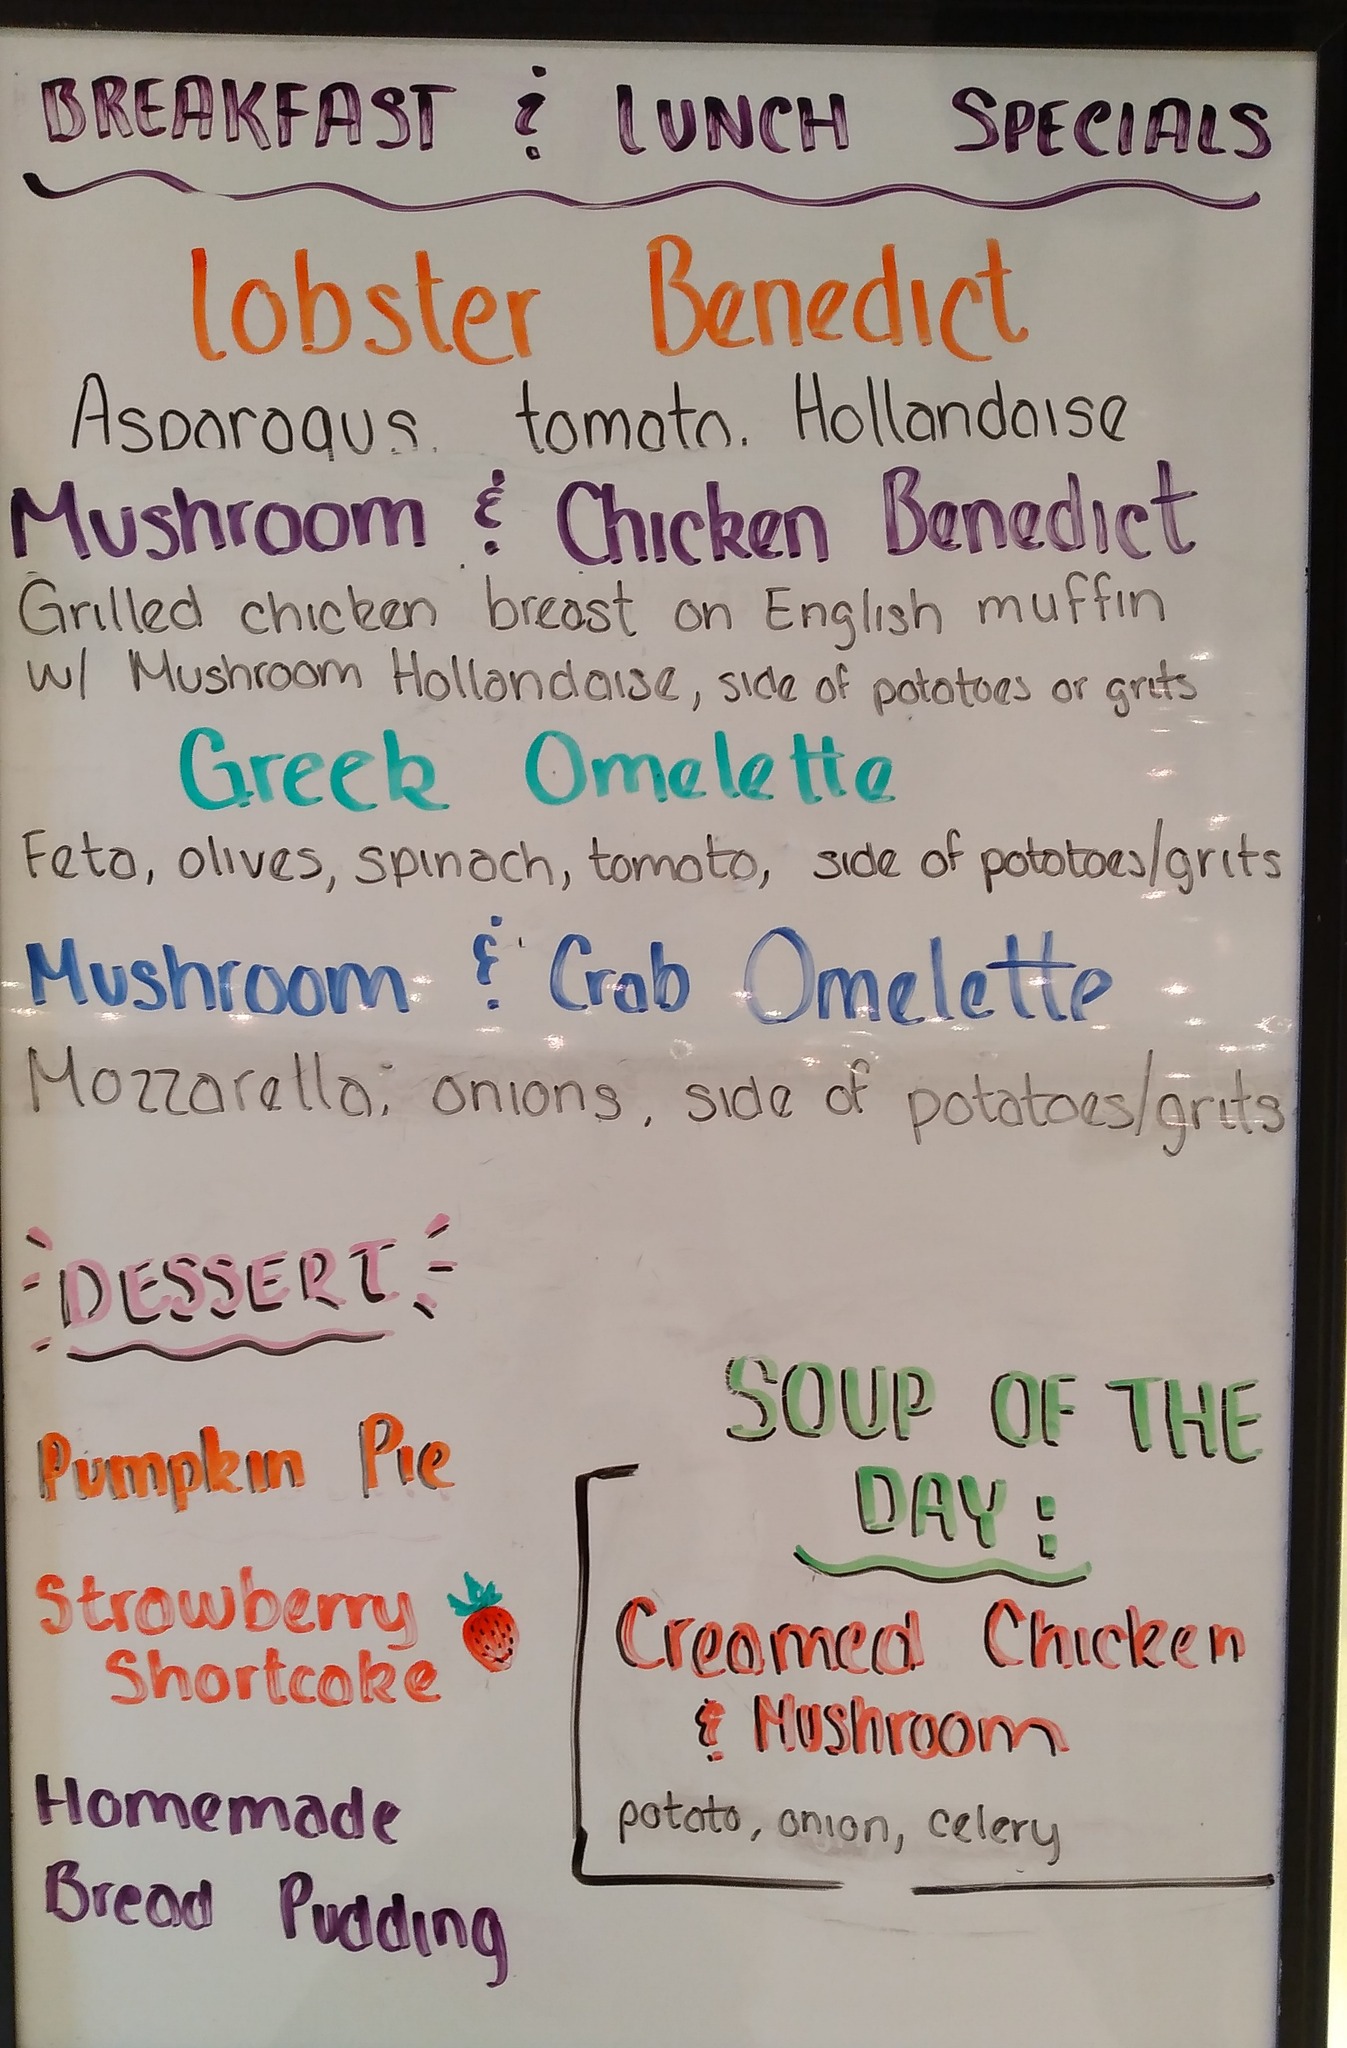 BREAKFAST & LUNCH SPECIALS
Lobster Benedict
Asparagus, tomato, Hollandaise
Mushroom & Chicken Benedict
Grilled chicken breast on English muffin
w/ Mushroom Hollandaise, side of potatoes or grits
Greek Omelette
Feta, olives, spinach, tomato, side of potatoes/grits
Mushroom & Crab Omelette
Mozzarella, onions, side of potatoes/grits
DESSERT
Pumpkin Pie
Strawberry
Shortcake
Homemade
Bread Pudding
SOUP OF THE
DAY:
Creamed Chicken
& Mushroom
potato, onion, celery